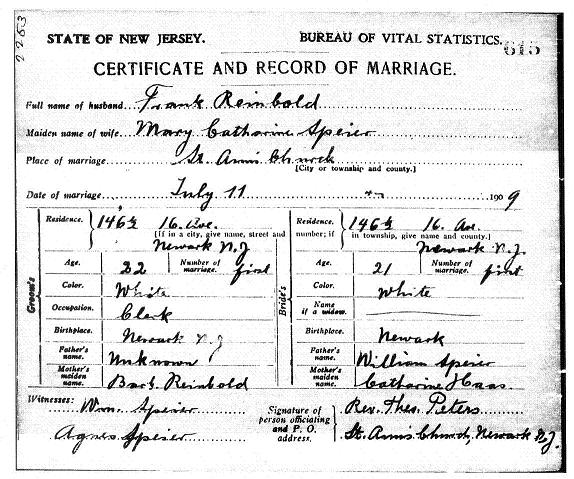 2283
STATE OF NEW JERSEY. BUREAU OF VITAL STATISTICS. 615
CERTIFICATE AND RECORD OF MARRIAGE.
Full name of husband Frank Reinbold
Maiden name of wife Mary Catharine Speier
Place of marriage St. Anns Church
[City or township and county.]
Date of marriage July 11 1909
Groom's
Residence. 146½ 16. Ave.
[If in a city, give name, street and
Newark N.J.
Age. 22 Number of marriage. first
Color. White
Occupation. Clerk
Birthplace. Newark N.J.
Father's name. Unknown
Mother's maiden name. Reinbold
Bride's
Residence. 146½ 16. Av.
number; if in township, give name and county.]
Newark N.J.
Age. 21 Number of marriage. first
Color. White
Name if a widow.
Birthplace. Newark
Father's name. William Speier
Mother's maiden name. Catharine Haas.
Witnesses: Wm. Speier
Agnes Speier
Signature of person officiating and P. O. address.
Rev. Theo. Peters
St. Anns Church, Newark N.J.